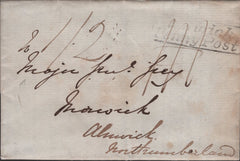 1/2
To
Penny Post
Major Genl. Grey
Morwick
Alnwick
Northumberland